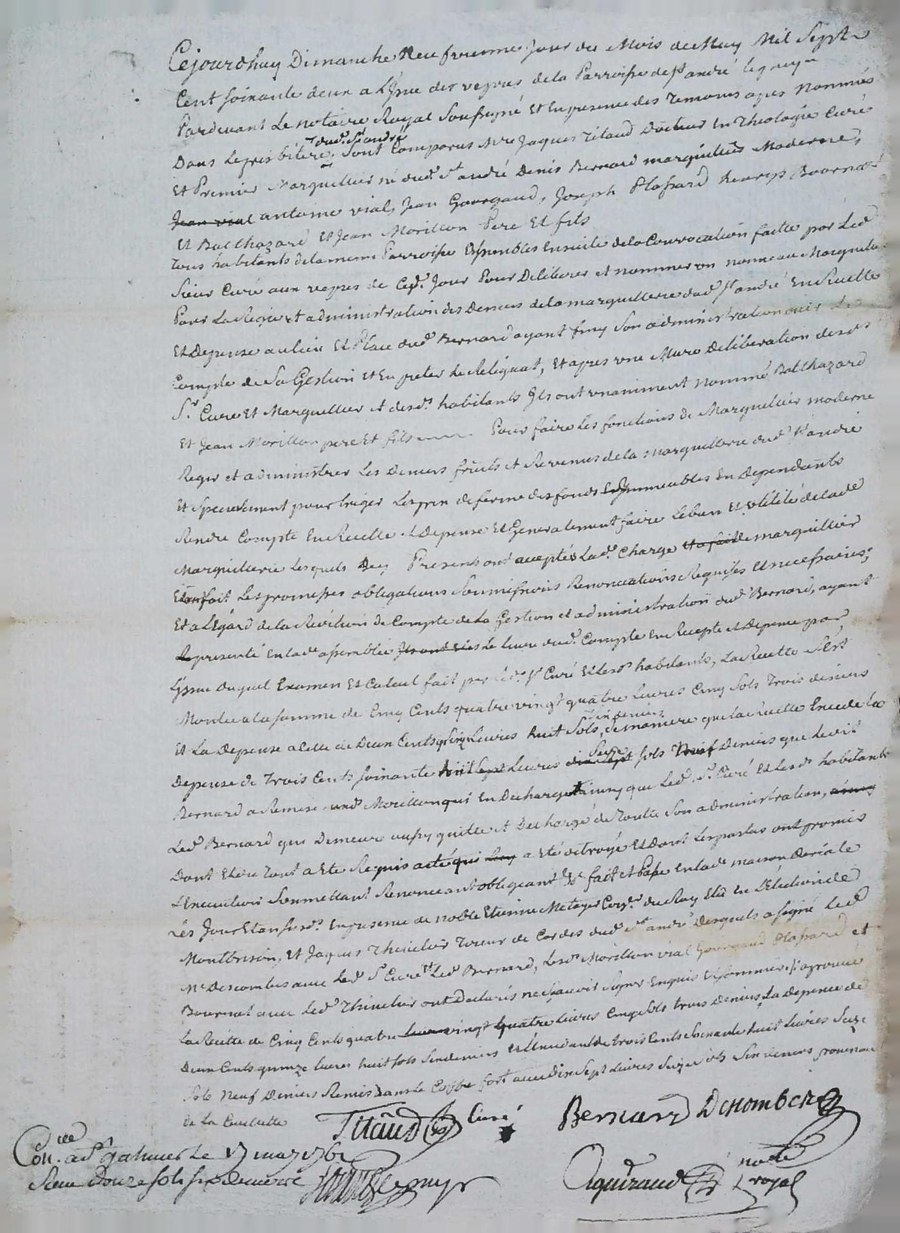 Cejourdhuy Dimanche Neufvieme Jour du Mois de May Mil Sept
Cent soixante deux a L'yssue des vepres de la Parroisse de St andré le puy
Pardevant Le notaire Royal Soussigné Et En presence des Temoins apres Nommés
dud. St andré
Dans Le presbitere, sont Comparus Mre Jaques Titaud Docteur En Theologie Curé
Et Premier Marguillier né dud. St andré Denis Bernard marguillier Moderne,
Jean vial antoine vial, Jean Gourgaud, Joseph Plassard
Et Balthazard Et Jean Morillon Pere Et fils
Tous habitants de la meme Parroisse Assemblés Ensuite de la Convocation faitte par Led.
Sieur Curé aux vepres de Cejd. Jour Pour Deliberer et nommer un nouveau Marguillier
Pour La Recepte et administration des Deniers de la marguillerie dud. St andré En Recette
Et Depense au lieu Et Place dud. Bernard ayant finy Son administration
Compte de Sa Gestion et En preter Le Reliquat, Et apres une Mure Deliberation desd.
Sr. Curé Et Marguillier Et desd. habitants Ils ont unaniment nommé Balthazard
Et Jean Morillon pere Et fils Pour faire Les fonctions de Marguillier moderne
Regir et administrer Les Deniers fruits et Revenus de la marguillerie dud. St andré
Et Specialement pour Exiger Le prix de ferme des fonds Et Immeubles En Dependants
Rendre Compte En Recette Et Depense Et Generalement faire Le bien Et utilité de lade.
Marguillerie Lesquels Presents ont acceptés Lad. Charge de marguillier
Et ont fait Les promesses obligations Soumissions Renonciations Requises Et necessaires;
Et a l'Egard de la Reddition de Compte de la Gestion et administration dud. Bernard, ayant
Representé En lade. assemblée Le livre dud. Compte En Recepte et Depense par
L'yssue duquel Examen Et Calcul fait par led. Sr. Curé Et lesd. habitants, La Recette S'Est
Montée a la somme de Cinq Cents quatre vingt quatre Livres Cinq Sols Trois deniers
Et La Depense a Celle de Deux Cents quinze Livres huit Sols six deniers, de maniere que la Recette Excede la
Depense de Trois Cents soixante huit Livres seize sols Neuf Deniers que led.
Bernard a Remise aud. Morillon qui En Decharge que Led. Sr. Curé Et lesd. habitants
Led. Bernard qui Demeure aussy quitte et Dechargé de Toutte Son administration,
Dont Et de Tout a Eté Requis acte qui a Eté octroyé Et Dont Les parties ont promis
L'Execution Soumettant Renonceant obligeant &c fait et Passé En lade. maison Curiale
Les Jour Et an susd. En presence de noble Etienne Metayer Consr. du Roy Elu En L'Election de
Montbrison, Et Jaques Thevelier Tireur de Cordes dud. St. andré Desquels a signé Led.
Mr. Descombes avec Led. Sr. Curé Et Led. Bernard, Lesd. Morillon vial Gourgaud Plassard et
Bournat avec Led. Thevelier ont Declarés ne Scavoir signer Enquis Et Sommés
La Recette de Cinq Cents quatre vingt quatre Livres Cinq sols trois deniers, La depense de
Deux Cents quinze Livres huit sols six deniers Et L'Excedant de Trois Cents Soixante huit Livres Seize
sols Neuf Deniers Remis dans le Coffre fort avec Dix Sept Livres Seize sols six deniers provenant
de la Cueillette
Titaud Curé
Bernard Descombes
Con.lle a St galmier Le 17 may 1762
notre royal